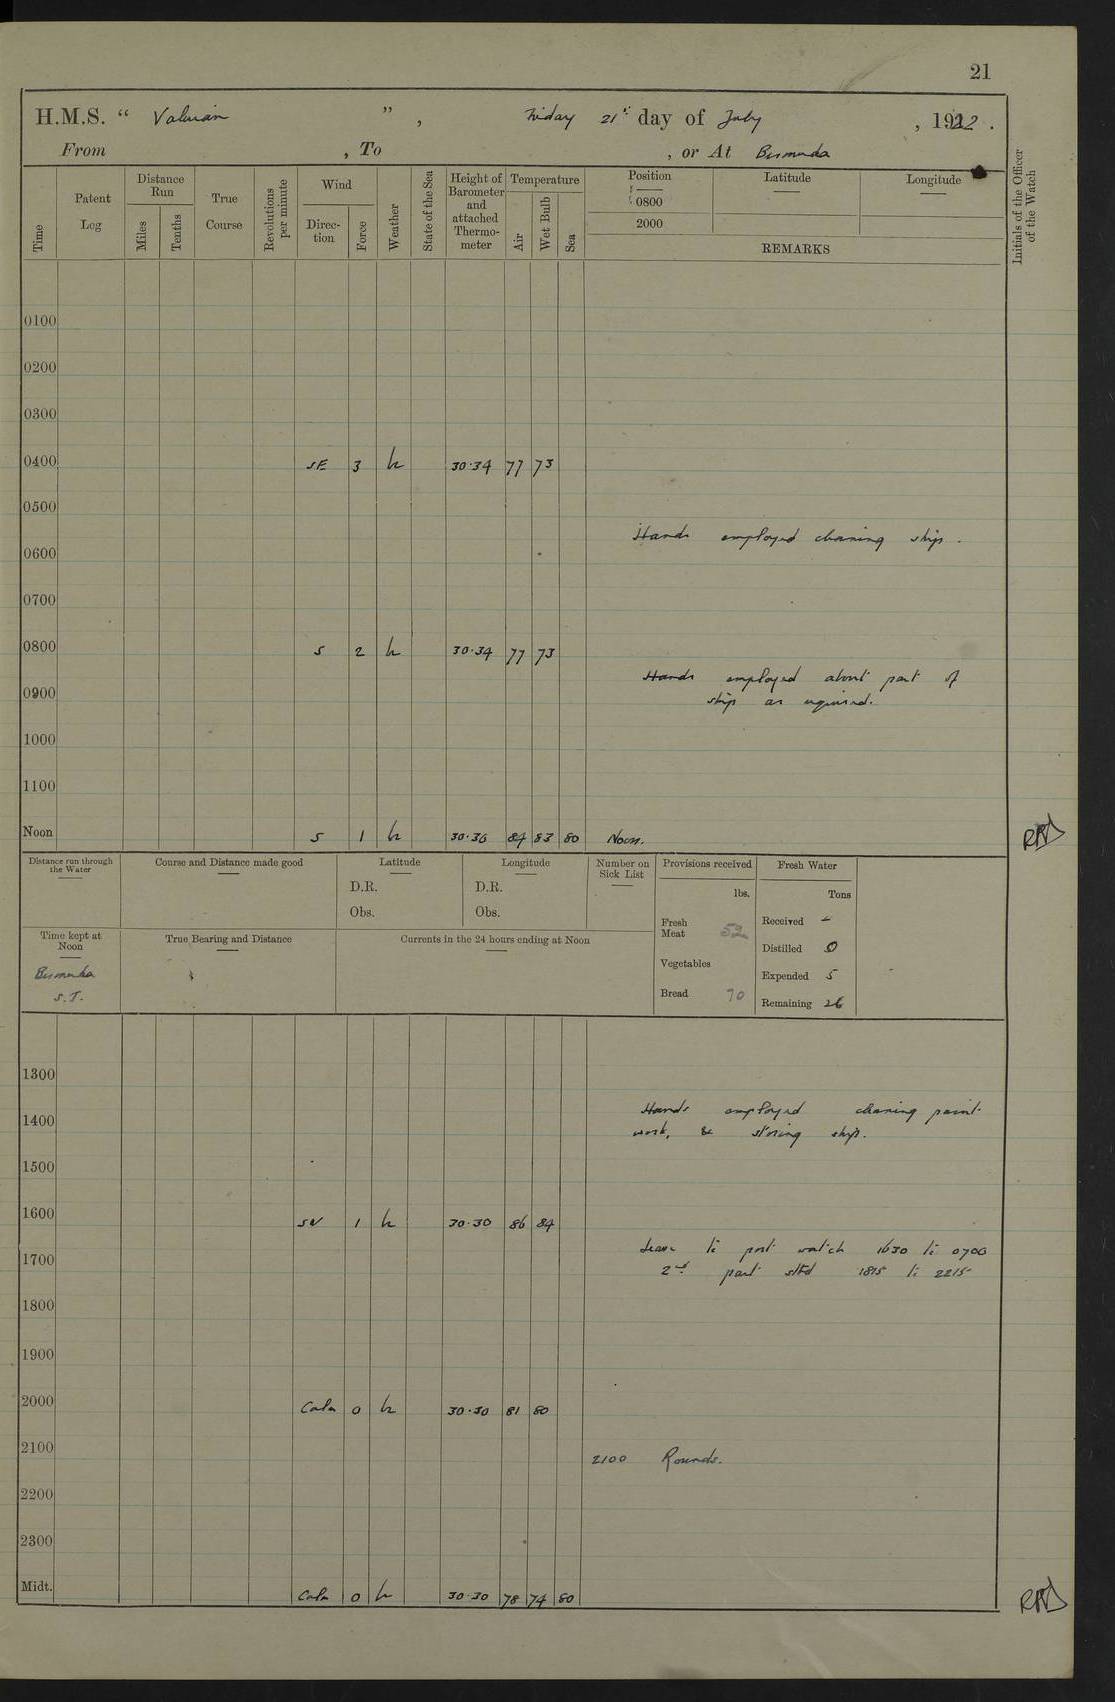 21
H.M.S. “ Valerian ” , Friday 21st day of July , 1922 .
From , To , or At Bermuda
Time
Patent Log
Distance Run
Miles
Tenths
True Course
Revolutions per minute
Wind
Direction
Force
Weather
State of the Sea
Height of Barometer and attached Thermometer
Temperature
Air
Wet Bulb
Sea
Position
Latitude
Longitude
0800
2000
REMARKS
Initials of the Officer of the Watch
0100
0200
0300
0400 SE 3 30·34 77 73
0500
Hands employed cleaning ship.
0600
0700
0800 S 2 30·34 77 73
Hands employed about part of
0900
ship as required.
1000
1100
Noon S 1 30·36 84 83 80 Noon.
Distance run through the Water
Course and Distance made good
Latitude
D.R.
Obs.
Longitude
D.R.
Obs.
Number on Sick List
Provisions received
lbs.
Fresh Meat 52
Vegetables
Bread 70
Fresh Water
Tons
Received -
Distilled 0
Expended 5
Remaining 26
Time kept at Noon
Bermuda
S.T.
True Bearing and Distance
Currents in the 24 hours ending at Noon
1300
Hands employed cleaning paint
1400
work, & storing ship.
1500
1600 SW 1 30·30 86 84
Leave to port watch 1630 to 0700
1700
2nd part stbd 1815 to 2215
1800
1900
2000 Calm 0 30·30 81 80
2100
2100 Rounds.
2200
2300
Midt. Calm 0 30·30 78 74 80